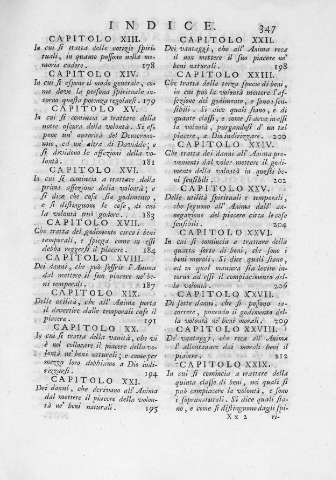 INDICE.
347
CAPITOLO XIII.
In cui si tratta delle notizie spirituali, in quanto possono nella memoria cadere. 178
CAPITOLO XIV.
In cui si espone il modo generale, come deve la persona spirituale intorno questa potenza regolarsi. 179
CAPITOLO XV.
In cui si comincia a trattare della notte oscura della volontà. Si espone un' autorità del Deuteronomio, ed un' altra di Davidde; e si dividono le affezioni della volontà. 181
CAPITOLO XVI.
In cui si comincia a trattare della prima affezione della volontà; e si dice che cosa sia godimento; e si distinguono le cose, di cui la volontà può godere. 183
CAPITOLO XVII.
Che tratta del godimento circa i beni temporali, e spiega come in essi debba reggersi il piacere. 184
CAPITOLO XVIII.
Dei danni, che può soffrir l'Anima dal mettere il suo piacere ne' beni temporali. 187
CAPITOLO XIX.
Delle utilità, che all' Anima porta il divertire dalle temporali cose il piacere. 191
CAPITOLO XX.
In cui si tratta della vanità, che vi è nel collocare il piacere della volontà ne' beni naturali; e come per mezzo loro dobbiamo a Dio indirizzarsi. 194
CAPITOLO XXI.
Dei danni, che derivano all' Anima dal mettere il piacere della volontà ne' beni naturali. 195
CAPITOLO XXII.
Dei vantaggi, che all' Anima reca il non mettere il suo piacere ne' beni naturali. 198
CAPITOLO XXIII.
Che tratta della terza specie di beni, in cui può la volontà mettere l'affezione del godimento, e sono sensibili. Si dice quali siano, e di quante classi, e come si deve avere la volontà, purgandosi d' un tal piacere, a Dio indirizzare. 200
CAPITOLO XXIV.
Che tratta dei danni all' Anima provenienti dal voler mettere il godimento della volontà in questi beni sensibili. 202
CAPITOLO XXV.
Delle utilità spirituali e temporali, che seguono all' Anima dall' annegazione del piacere circa le cose sensibili. 204
CAPITOLO XXVI.
In cui si comincia a trattare della quarta sorte di beni, che sono i beni morali. Si dice quali siano, ed in qual maniera sia lecito intorno ad essi il compiacimento della volontà. 206
CAPITOLO XXVII.
Dei danni, che si possono incorrere, ponendo il godimento della volontà ne' beni morali. 209
CAPITOLO XXVIII.
De' vantaggi, che reca all' Anima l' allontanare dai morali beni il piacere. 212
CAPITOLO XXIX.
In cui si comincia a trattare della quinta classe di beni, nei quali si può compiacere la volontà, e sono i soprannaturali. Si dice quali siano, e come si distinguono dagli spi-
Xx 2 ri-